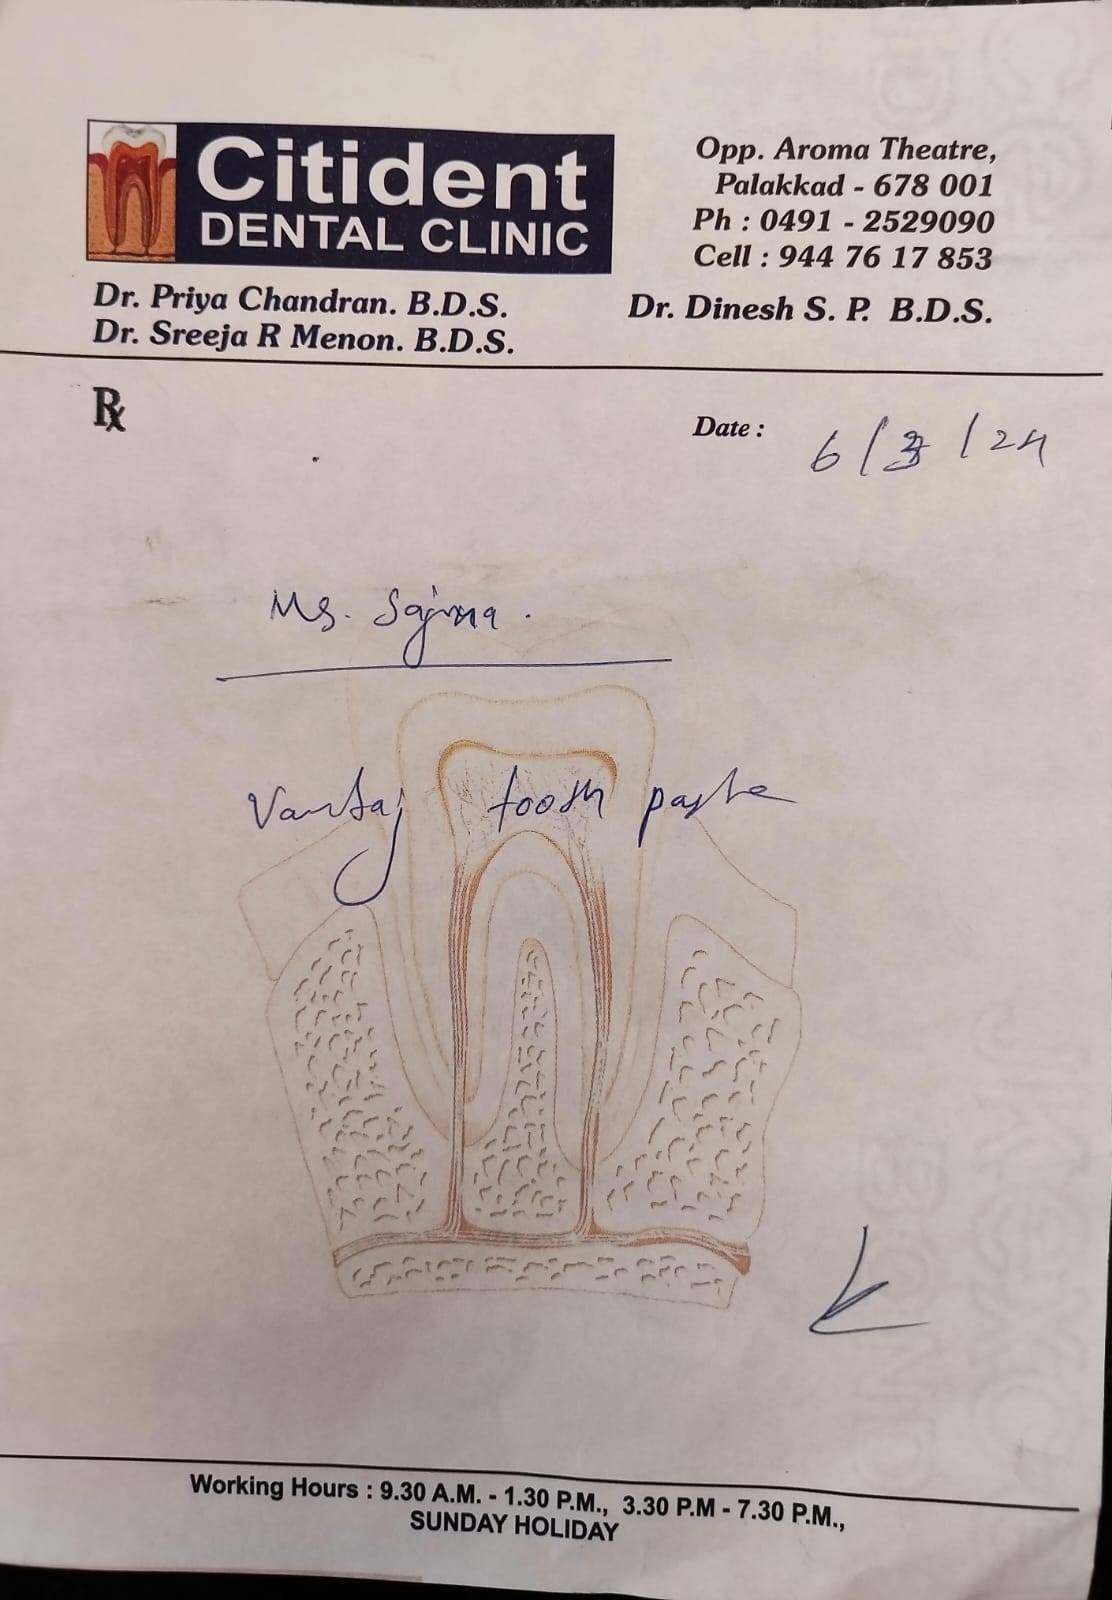 Citident
DENTAL CLINIC
Opp. Aroma Theatre,
Palakkad - 678 001
Ph : 0491 - 2529090
Cell : 944 76 17 853
Dr. Priya Chandran. B.D.S.
Dr. Sreeja R Menon. B.D.S.
Dr. Dinesh S. P. B.D.S.
Rx
Date : 6/3/24
Ms. Sajna.
Vantaj tooth paste
Working Hours : 9.30 A.M. - 1.30 P.M., 3.30 P.M - 7.30 P.M.,
SUNDAY HOLIDAY